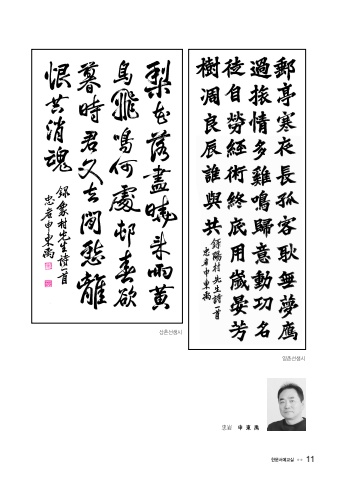 郵亭寒夜長孤客耿無夢鷹
過旅情多雞鳴歸意動功名
徒自勞經術終底用歲晏芳
樹凋良辰誰與共
錄陽村先生詩一首
忠岩申東禹
양촌선생시
梨花落盡曉來雨黃
鳥飛鳴何處邨春欲
暮時君又去閒愁離
恨共消魂
錄象村先生詩一首
忠岩申東禹
상촌선생시
忠岩 申東禹
한문서예교실 11